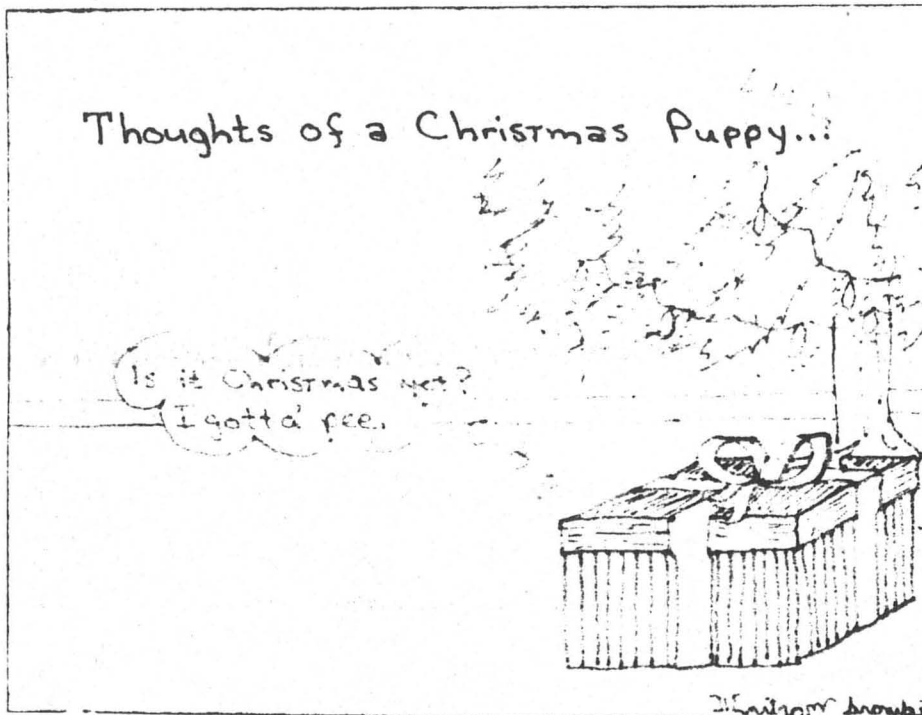 Thoughts of a Christmas Puppy...
Is it Christmas yet?
I gotta' pee.